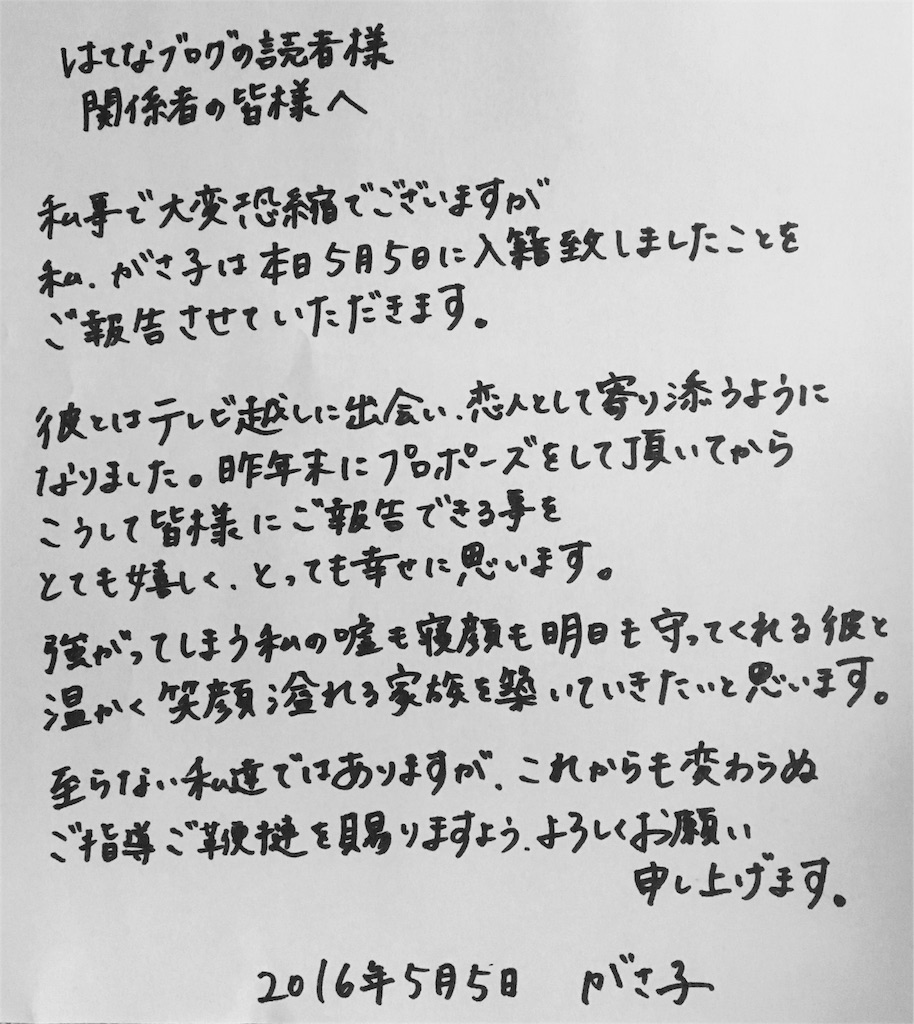 はてなブログの読者様
関係者の皆様へ
私事で大変恐縮でございますが
私、がさ子は本日5月5日に入籍致しましたことを
ご報告させていただきます。
彼とはテレビ越しに出会い、恋人として寄り添うように
なりました。昨年末にプロポーズをして頂いてから
こうして皆様にご報告できる事を
とても嬉しく、とっても幸せに思います。
強がってしまう私の嘘も寝顔も明日も守ってくれる彼と
温かく笑顔溢れる家族を築いていきたいと思います。
至らない私達ではありますが、これからも変わらぬ
ご指導ご鞭撻を賜りますよう、よろしくお願い
申し上げます。
2016年5月5日 がさ子